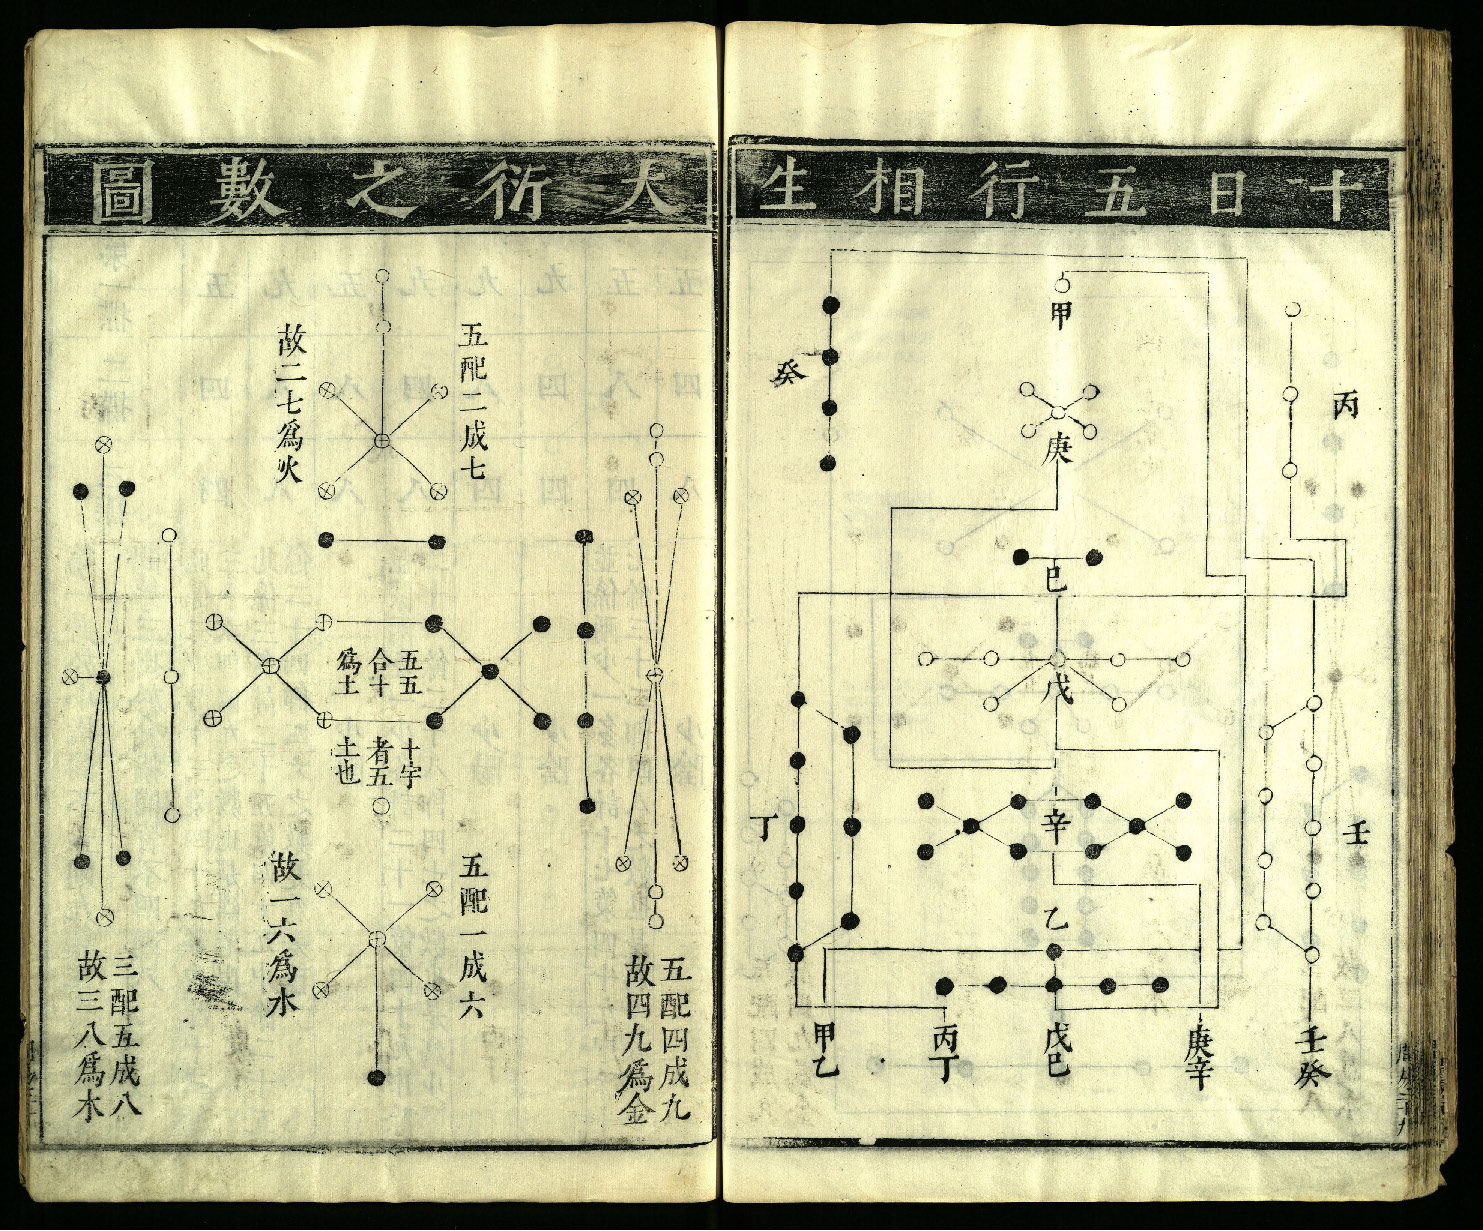 十日五行相生
甲
丙
癸
庚
己
戊
丁
辛
壬
乙
壬癸
庚辛
戊己
丙丁
甲乙
大衍之數圖
五配二成七
故二七爲火
五五
合十
爲土
十字
者五
土也
五配一成六
故一六爲水
五配四成九
故四九爲金
三配五成八
故三八爲木